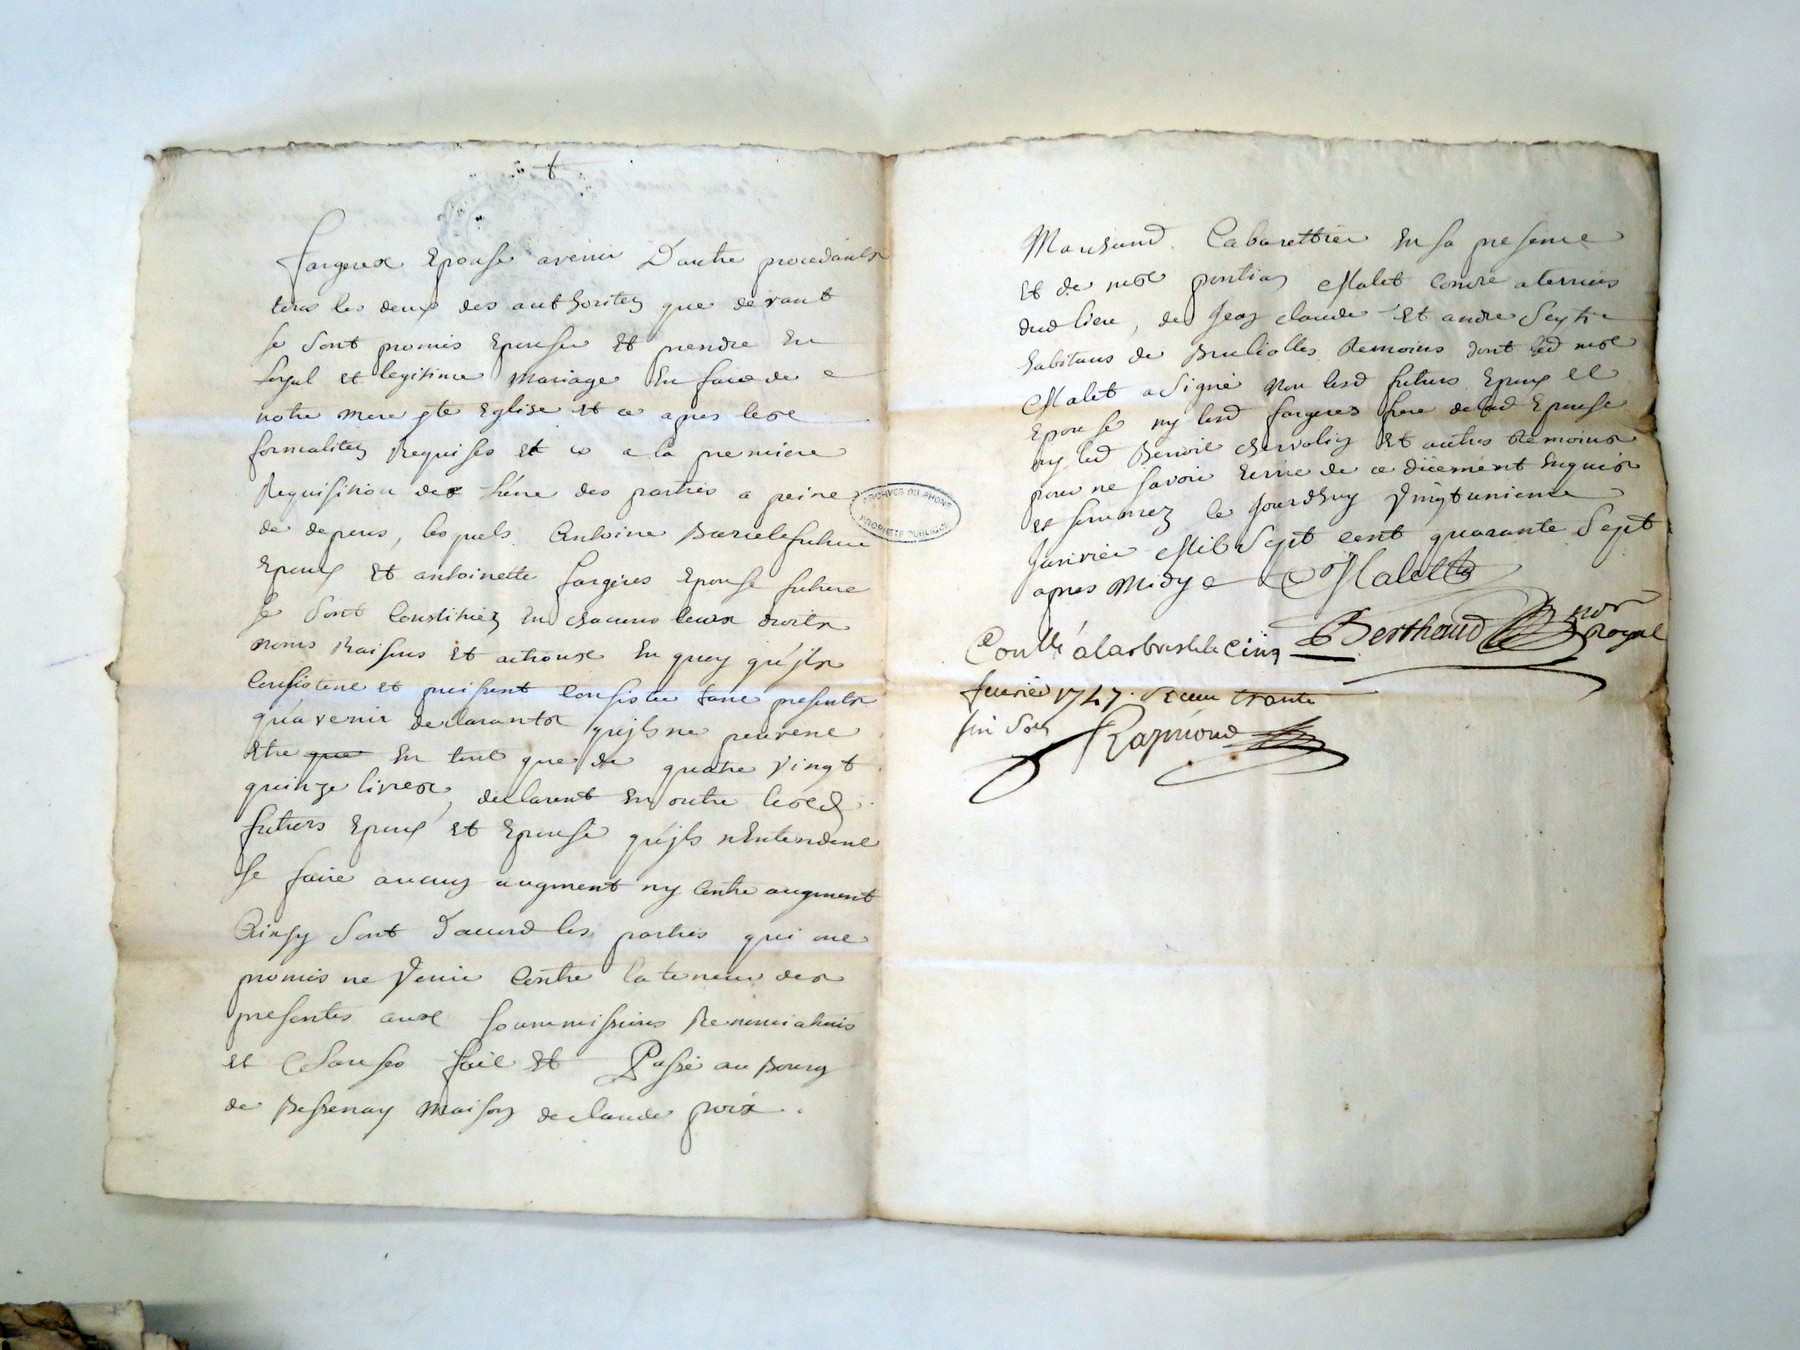 fargeres Epouse avenir D'autre procedants
tous les deux des authoritez que devant
se sont promis Epouser Et prendre En
Loyal et legitime mariage En face de
notre mere ste Eglise Et ce apres les
formalitez Requises Et ce a la premiere
Requisition de des parties a peine
de depens, lesquels Antoine futur
Epoux Et antoinette fargeres Epouse future
se sont Constituez En chacuns leurs droits
noms Raisons Et actions En quoy qu'jls
Consistent et puissent Consister tant presents
qu'avenir declarants qu'jls ne peuvent
Etre que En tout que de quatre vingt
quinze livres, declarent En outre lesd
futurs Epoux Et Epouse qu'jls n'Entendent
se faire aucun augment ny Contre augment
Ainsy sont D'accord les parties qui ont
promis ne venir Contre la teneur des
presentes aux soummissions Renonciations
et Clauses fait Et Passé au Bourg
de Bessenay maison de claude
Marchand Cabarettier En sa presence
Et de Malet
dud lieu, de Jean claude Et andre
habitans de Brulliolles temoins dont led
Malet a signé Non lesd futurs Epoux Et
Epouse ny led fargeres frere de lad Epouse
ny led Benoit Et autres temoins
pour ne savoir Ecrire de ce düement Enquis
et sommez le jourdhuy vingtunieme
janvier Mil sept cent quarante sept
apres midy Malet
Berthaud nore Royal
Conllé à Larbresle le cinq
fevrier 1747. Receu trente
six sols
Raymond
ARCHIVES DU RHONE
PROPRIETE PUBLIQUE